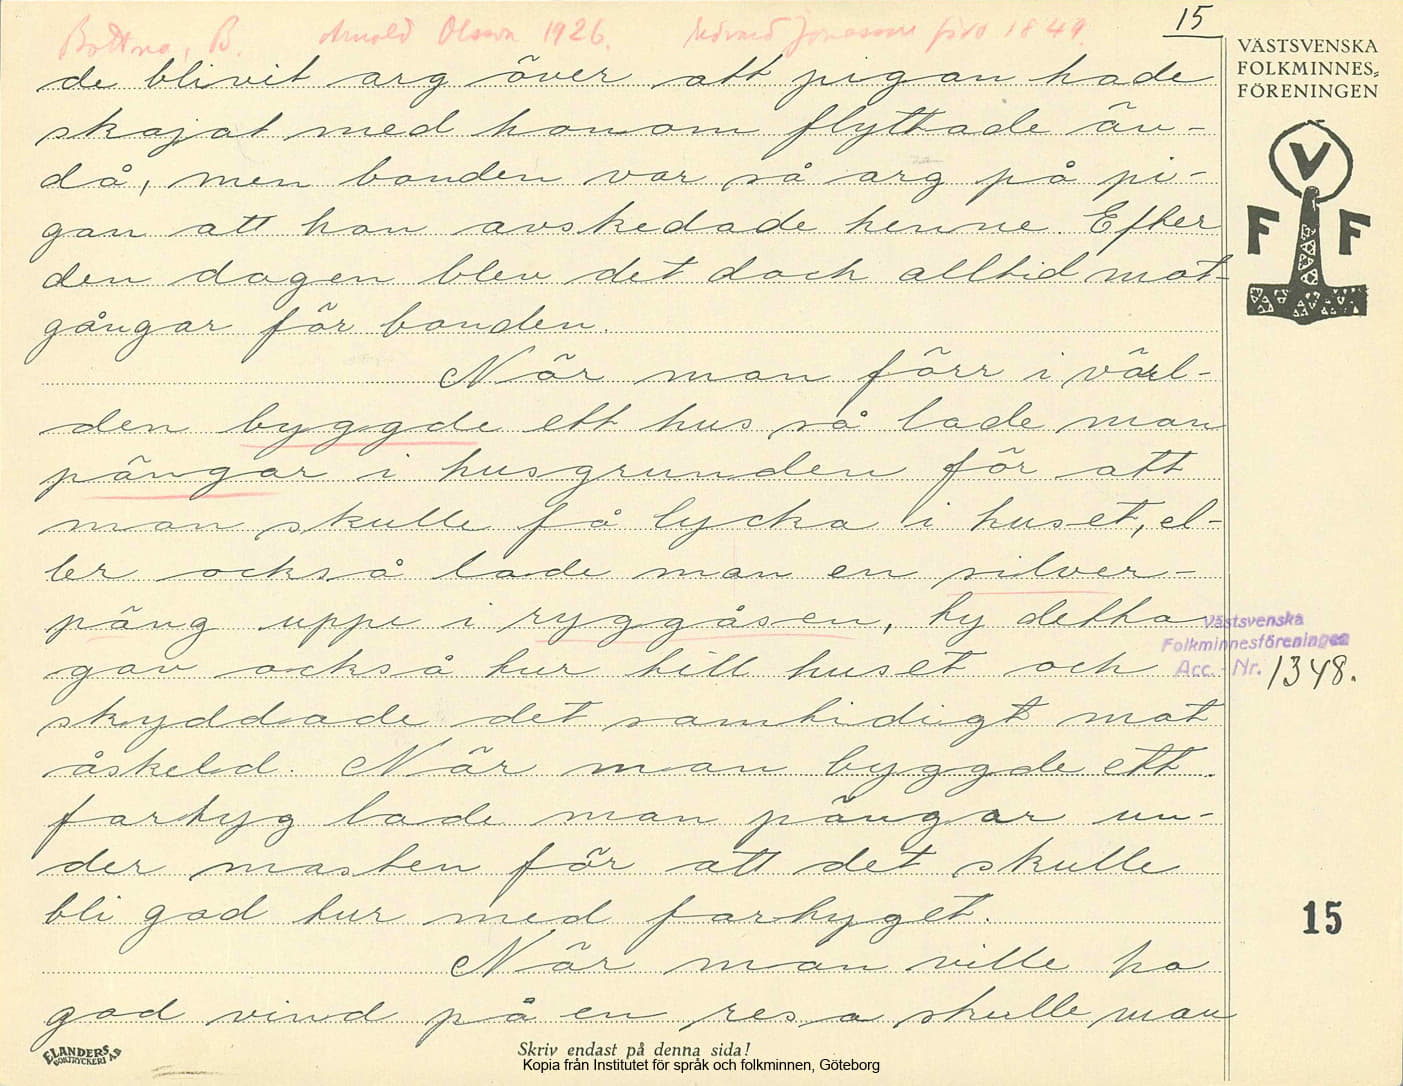 15
Bottna, B. Arnold Olsson 1926. Jonasson född 1849.
VÄSTSVENSKA
FOLKMINNES-
FÖRENINGEN
V
F F
de blivit arg över att pigan hade
skojat med honom flyttade än-
då, men bonden var så arg på pi-
gan att han avskedade henne. Efter
den dagen blev det doch alltid mot-
gångar för bonden.
När man förr i värl-
den byggde ett hus så lade man
pängar i husgrunden för att
man skulle få lycka i huset, el-
ler också lade man en silver-
päng uppe i ryggåsen, ty detta
gav också tur till huset och
skyddade det samtidigt mot
åskeld. När man byggde ett
fartyg lade man pängar un-
der masten för att det skulle
bli god tur med fartyget.
När man ville ha
god vind på en resa skulle man
Västsvenska
Folkminnesföreningen
Acc. - Nr. 1348.
15
ELANDERS
BOKTRYCKERI AB
Skriv endast på denna sida!
Kopia från Institutet för språk och folkminnen, Göteborg